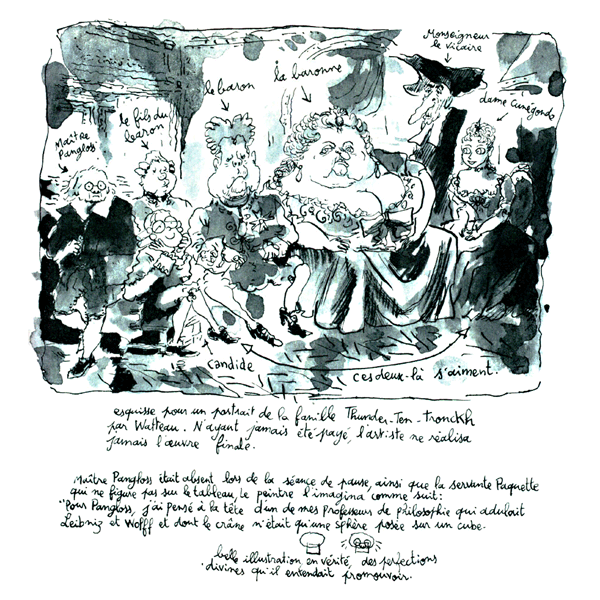 Monseigneur
le vicaire
le baron
la baronne
dame Cunégonde
le fils du
baron
Maître
Pangloss
Candide
ces deux-là s'aiment.
esquisse pour un portrait de la famille Thunder-Ten-tronckh
par Watteau. N'ayant jamais été payé, l'artiste ne réalisa
jamais l'œuvre finale.
Maître Pangloss était absent lors de la séance de pause, ainsi que la servante Paquette
qui ne figure pas sur le tableau, le peintre l'imagina comme suit:
"Pour Pangloss, j'ai pensé à la tête d'un de mes professeurs de philosophie qui adulait
Leibniz et Wolff et dont le crâne n'était qu'une sphère posée sur un cube.
belle illustration en vérité, des perfections
divines qu'il entendait promouvoir.